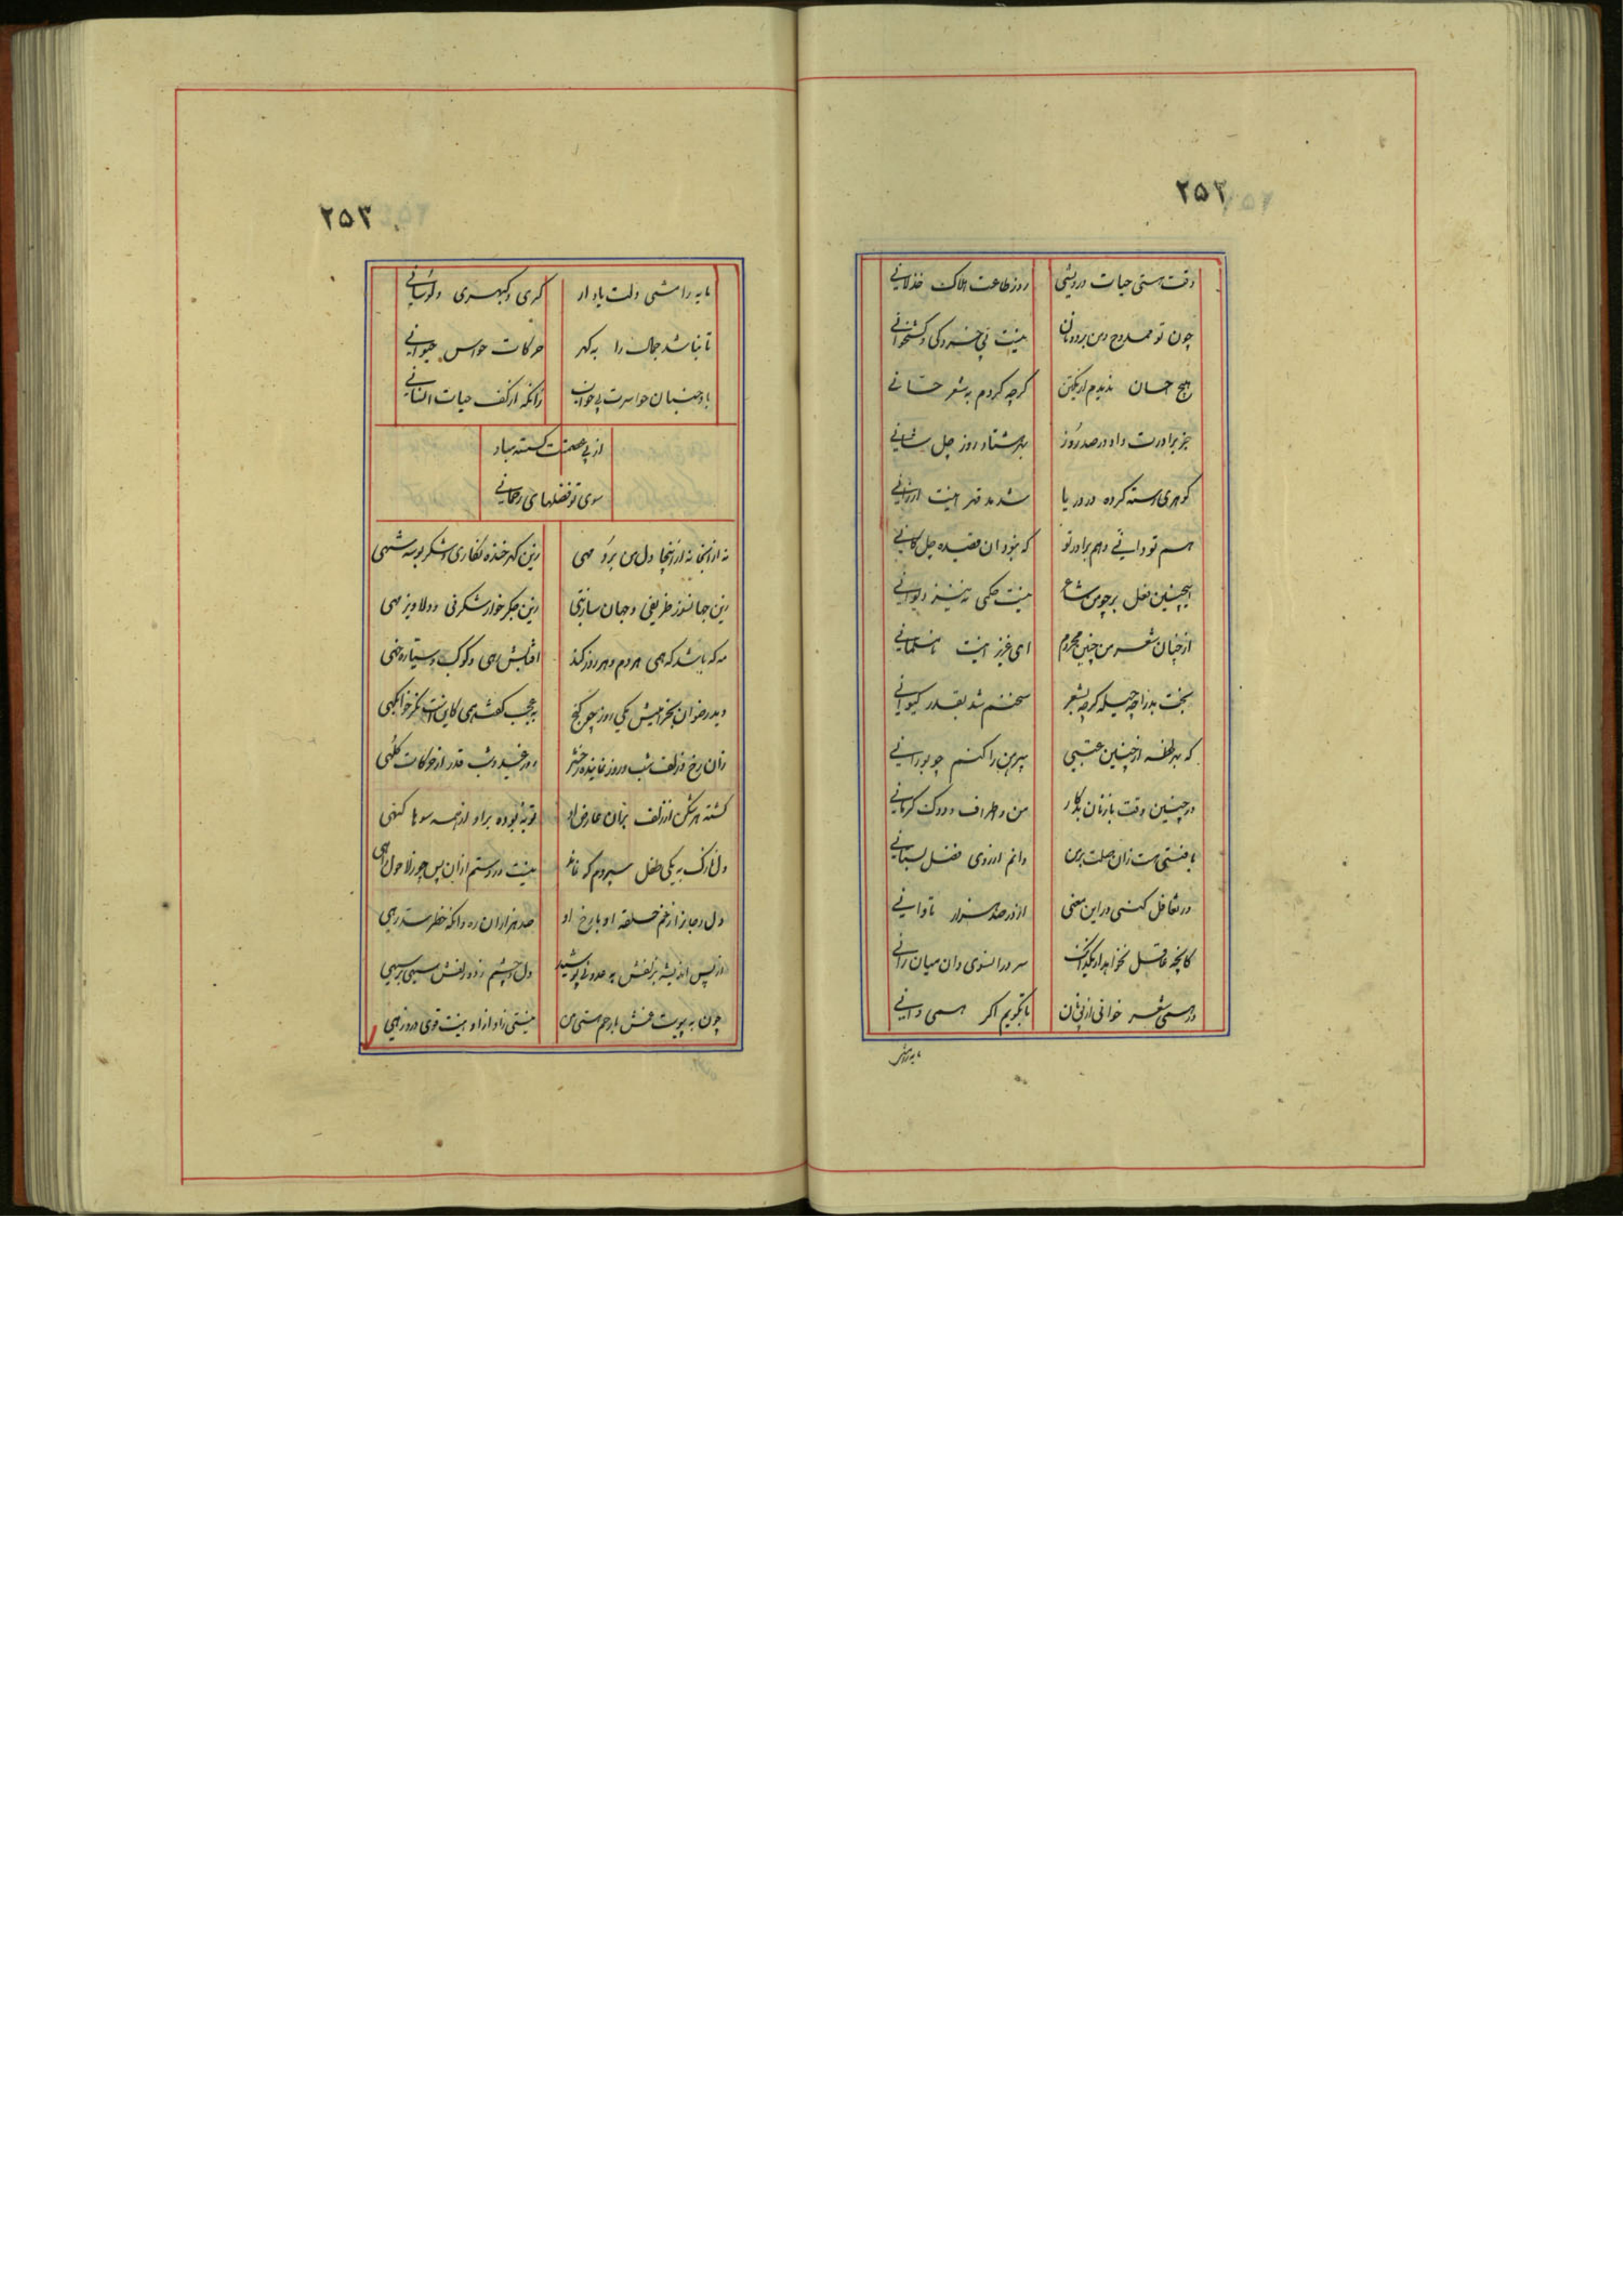 ۲۵۲
وقت هستی حیات درویشی روز طاعت هلاک خذلانی
چون تو ممدوح و من بر دونان نیست بی خسروکی و کشخوانی
هیچ حسان ندیدم از یک تن گرچه کردم به شعر حسانی
جز برادرت داد در صد روز بهر هشتاد روز چل
گوهری رسته کرده در دریا شد بد قهر اینت ارزانی
هم تو دانی و هم برادر تو که نبود آن قصیده چل گانی
اینچنین فعل بر چو من شاعر نیست حکمی نه نیز دیوانی
از چنان شعر من چنین محروم ای عزیز اینت نامسلمانی
بخت بد را چه حیله گرچه بشعر سخنم شد بقدر کیوانی
که بهر لحظه از چنین عتبی پیرهن را کنم چو بورانی
در چنین وقت با زنان بکار من و اطراف و دوک کرمانی
با چنی هست زان صلت بر من دانم از روی فضل بستانی
در تغافل کنی در این معنی از در صد هزار تاوانی
کانچه عاقل نخواهد از یک بیت سر در آنسوی و آن میان رانی
درهمی شعر خوانی از پی نان تا بگویم اگر همی دانی
۲۵۳
مایه رامشی دلت باد ار کری و کبهری و لوتیانی
تا نباشد جمال را به گهر حرکات حواس حیوانی
باد جنبان حواست بی حیوان زانکه از کف حیات انسانی
از پی عصمتت گسسته مباد
سوی تو فضلهای رحمانی
نه از اینجا نه از آنجا دل من برد مهی زین گهر خنده گفتاری و شکر بوسه شهی
زین جهانسوز ظریفی و جهان ساز بتی زین جگرخوار شگرفی و دلاویز مهی
مه که باشد که همی هر دم و هر روز کند آفتابش رهی و کوکب سیاره رهی
دید رضوان بخرامیش یکی روز چو گنج به عجب گفت همی کاینت نکو خوابگهی
زان رخ و زلف شب و روز نماینده حشر روز عید و شب قدر از حرکات کلهی
گشته هر شکن از زلف بران عارض او توبه توبه بوده بر او از همه سوها گنهی
دل نازک به یکی طفل سپردم که نماند نیست در دستم ازان پس چو ز لا حول رهی
دل و جان را ز خم حلقه او با رخ او صد هزاران ره و آنکه خطر هست رهی
از پس اندیشه زلفش به صدونی پوشید دل و چشم زده زلفش سیهی بر سیهی
چون به پیوست غمش با رحم هستی من نیستی زاد از او نیست قوی درد زهی
مایه رامش